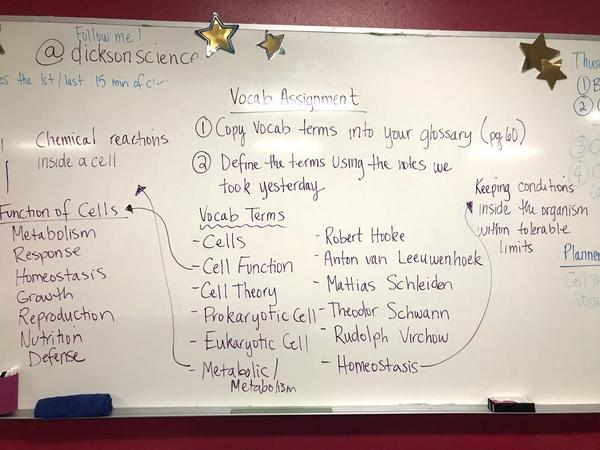 Follow me!
@ dicksonscience
the 1st/last 15 min of
Vocab Assignment
① Copy vocab terms into your glossary (pg 60)
② Define the terms using the notes we
took yesterday
Chemical reactions
inside a cell
Function of Cells
Metabolism
Response
Homeostasis
Growth
Reproduction
Nutrition
Defense
Vocab Terms
- Cells
- Cell Function
- Cell Theory
- Prokaryotic Cell
- Eukaryotic Cell
- Metabolic/
Metabolism
- Robert Hooke
- Anton van Leeuwenhoek
- Mathias Schleiden
- Theodor Schwann
- Rudolph Virchow
- Homeostasis
Keeping conditions
inside the organism
within tolerable
limits
①
②
③
④
Planner